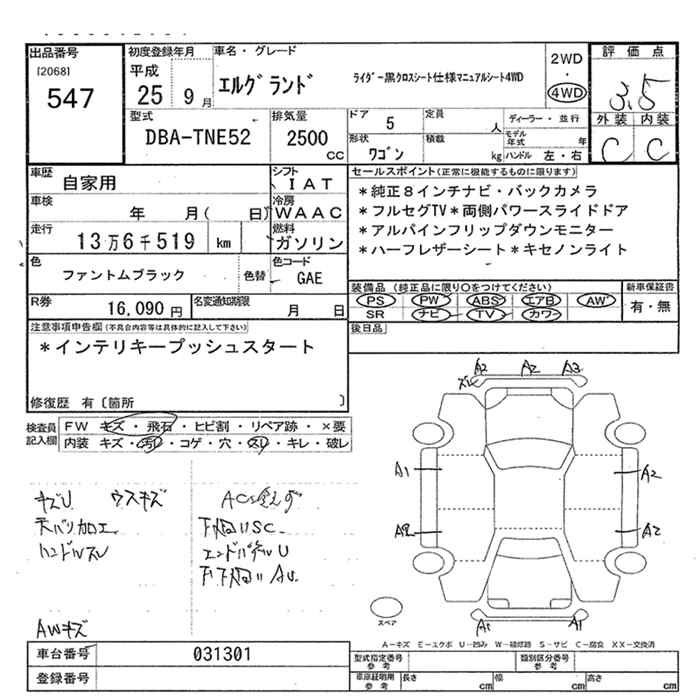 出品番号
[2068]
547
初度登録年月
平成
25 9月
車名・グレード
エルグランド
ライダー黒クロスシート仕様マニュアルシート4WD
2WD
・
4WD
評価点
3.5
外装 内装
C C
型式
DBA-TNE52
排気量
2500
CC
ドア 5
定員 人
ディーラー・並行
形状
ワゴン
積載 kg
モデル年式 年
ハンドル 左・右
車歴
自家用
シフト
IAT
車検 年 月( 日)
冷房
WAAC
走行
13万6千519 km
燃料
ガソリン
色
ファントムブラック
色替
色コード
GAE
R券
16,090円
名変通知期限 月 日
セールスポイント(正常に機能するものに限ります)
*純正8インチナビ・バックカメラ
*フルセグTV*両側パワースライドドア
*アルパインフリップダウンモニター
*ハーフレザーシート*キセノンライト
装備品(純正品に限り○をつけてください)
PS PW ABS エアB AW
SR ナビ TV カワー
新車保証書
有・無
後日品
注意事項申告欄(不具合内容等は具体的に記入して下さい)
*インテリキープッシュスタート
修復歴 有〔箇所 〕
検査員記入欄
FW キズ・飛石・ヒビ割・リペア跡・×要
内装 キズ・汚レ・コゲ・穴・スレ・キレ・破レ
キズU ウスキズ
天バリ加工
ハンドルスレ
下廻りSC
エンドパネルU
AWキズ
A2 A2 A3
A1 A2
A2 A2
A1 A1
スペア
A-キズ E-エクボ U-凹み W-補修跡 S-サビ C-腐食 XX-交換済
車台番号 031301
登録番号
型式指定番号 参考
類別区分番号 参考
車庫証明用 参考
長さ cm
幅 cm
高さ cm